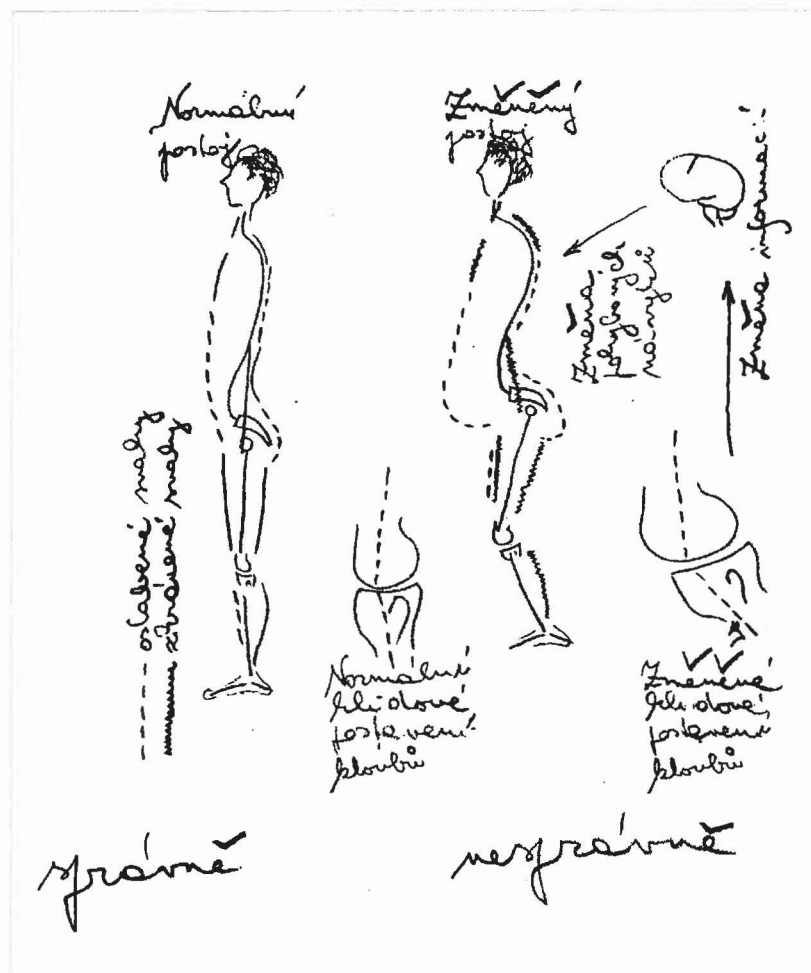 Normální
postoj
Změněný
postoj
Změna informací
Změna
pohybových
návyků
oslabené svaly
zkrácené svaly
Normální
klidové
postavení
kloubů
Změněné
klidové
postavení
kloubů
správně
nesprávně